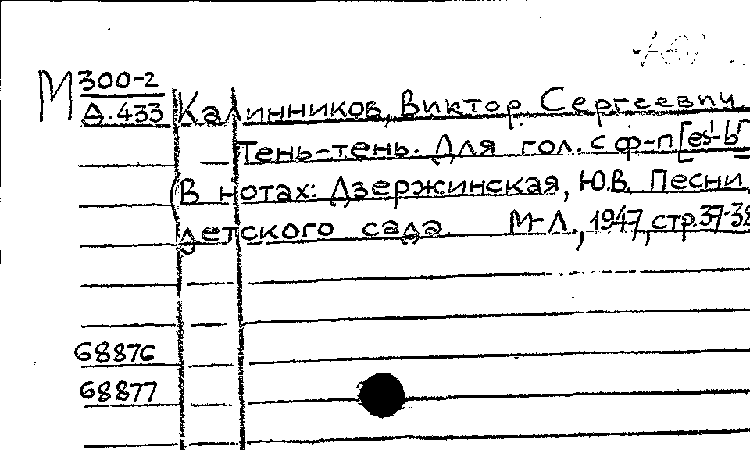 М 300-2
Д.433 Калинников, Виктор Сергеевич.
Тень-тень. Для гол. с ф-п [es¹-b¹
(В нотах: Дзержинская, Ю.В. Песни
детского сада. М-Л., 1947, стр.37-38
68876
68877